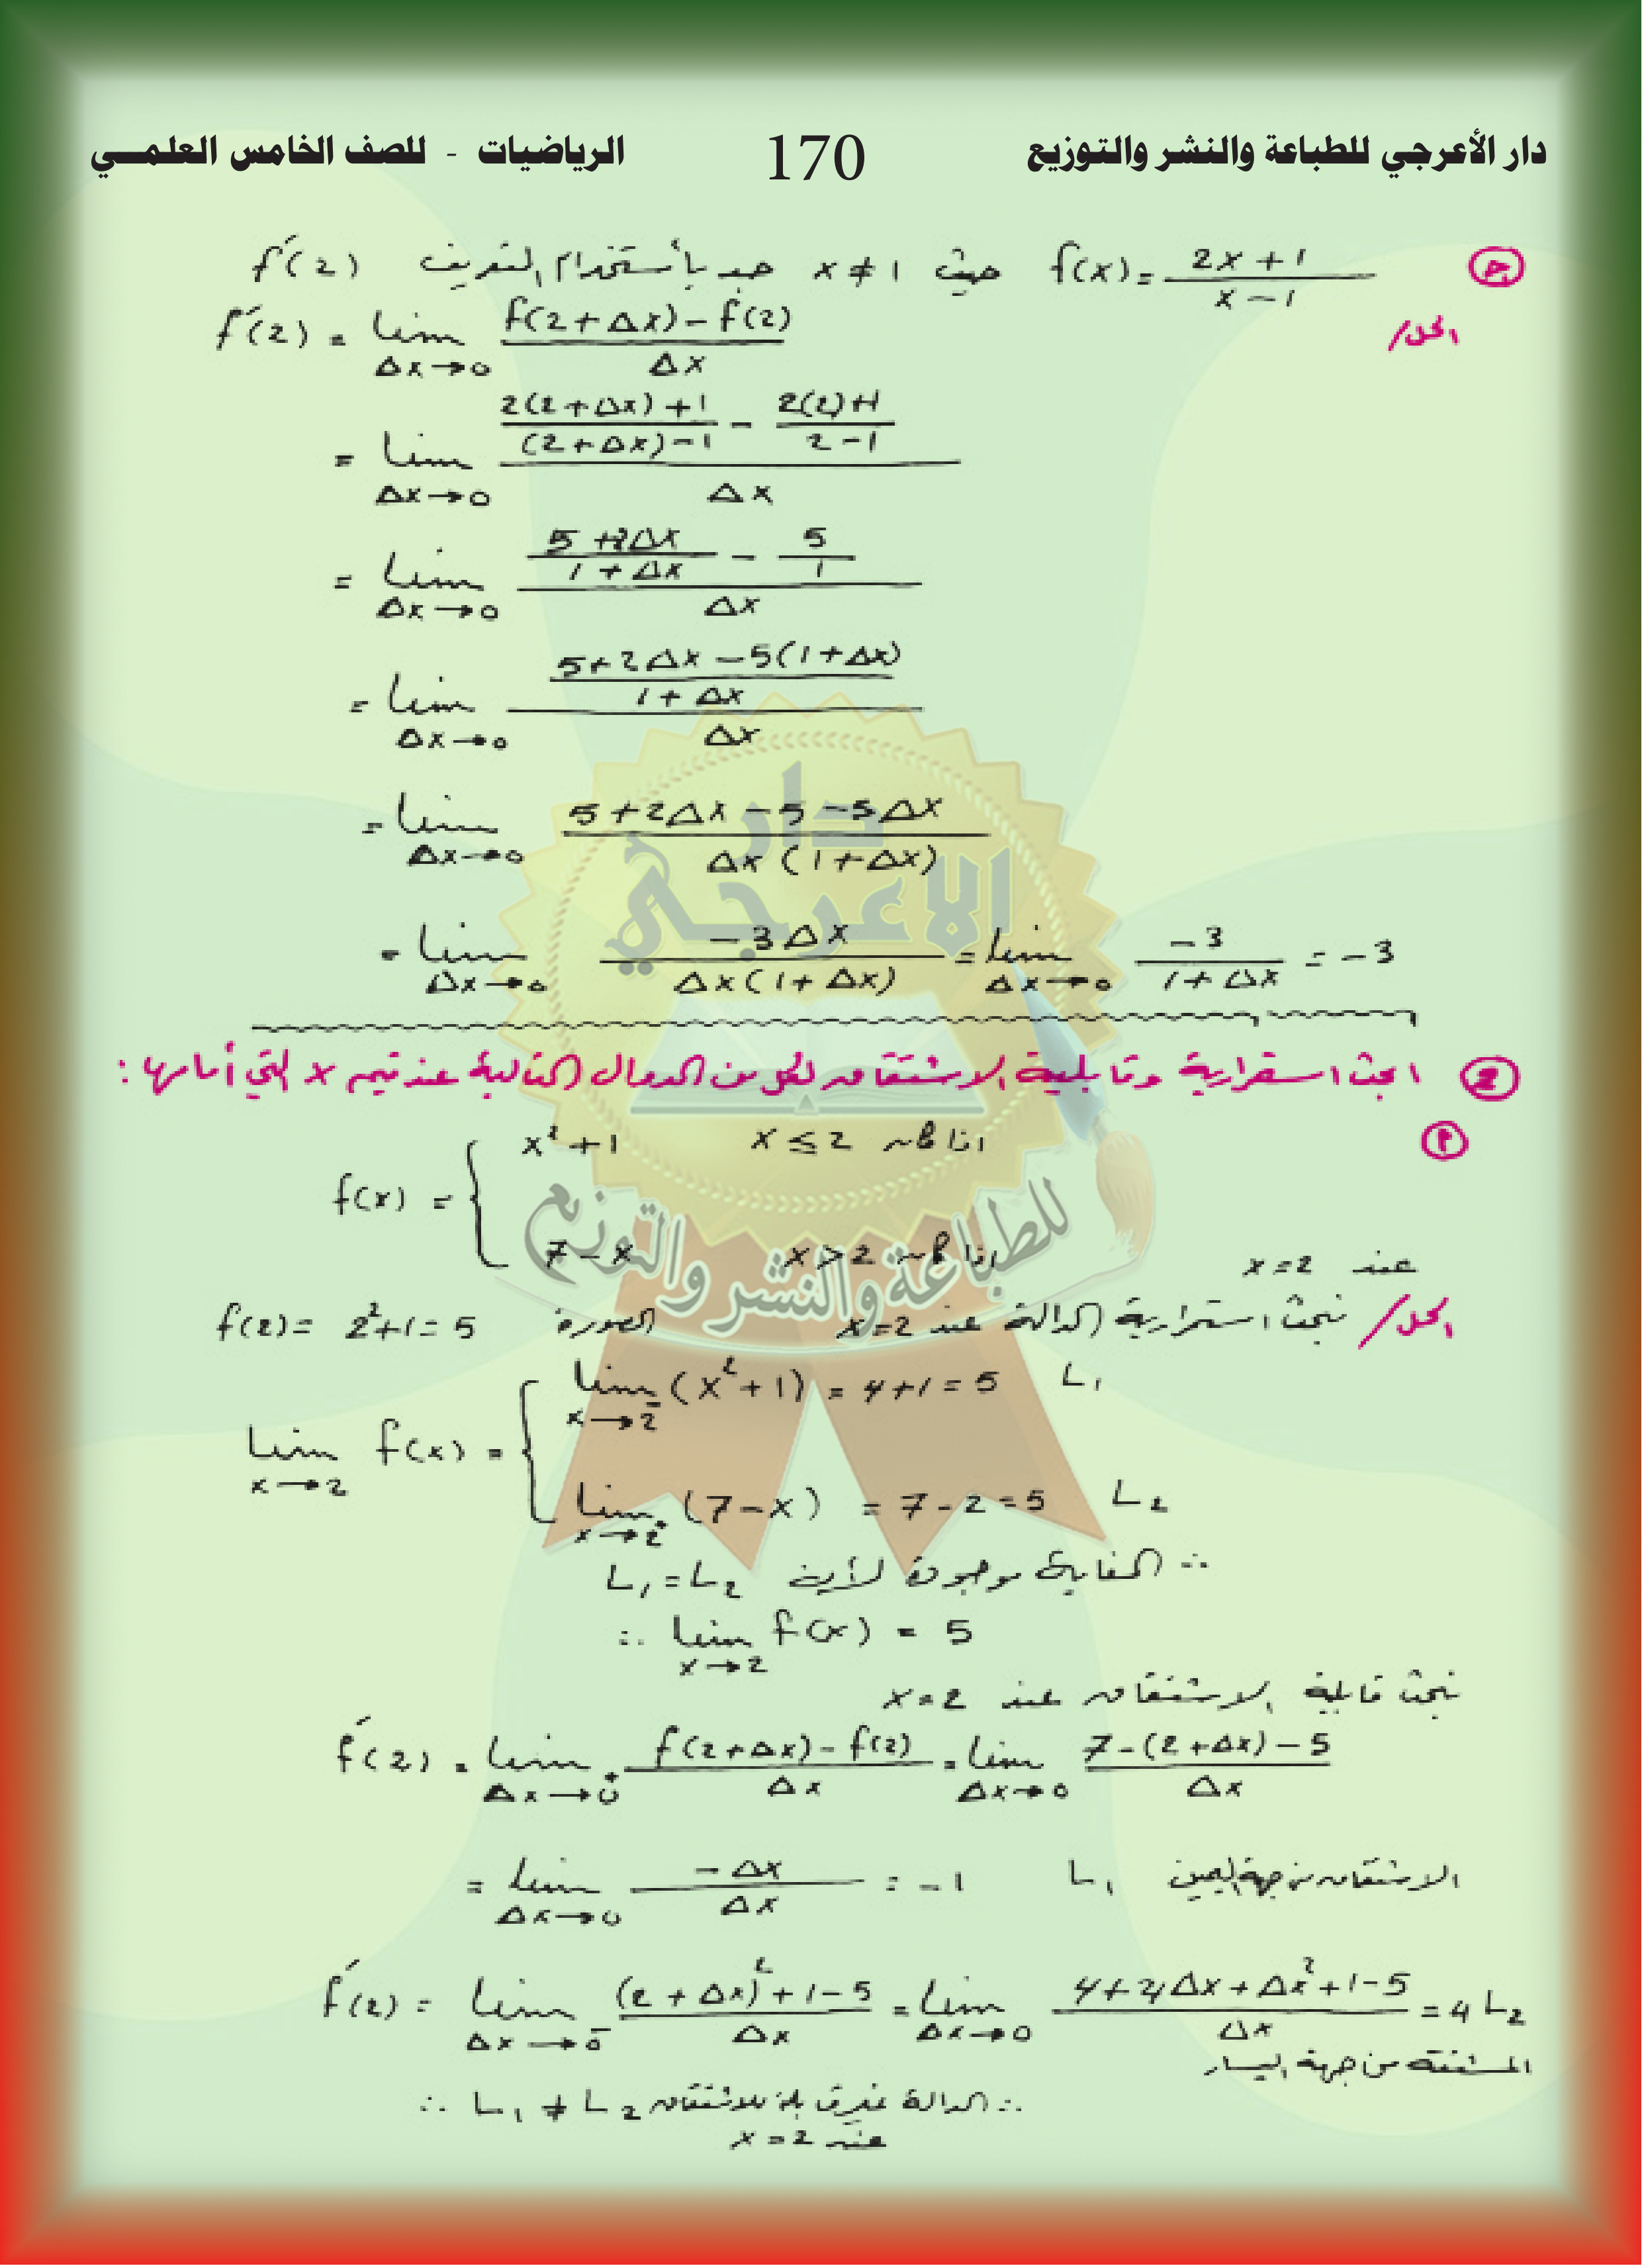 دار الأعرجي للطباعة والنشر والتوزيع 170 الرياضيات - للصف الخامس العلمـــي
ج f(x) = (2x+1)/(x-1) حيث x ≠ 1 جد بأستخدام التعريف f'(2)
الحل/
f'(2) = lim Δx→0 (f(2+Δx) - f(2))/Δx
= lim Δx→0 ((2(2+Δx)+1)/((2+Δx)-1) - (2(2)+1)/(2-1))/Δx
= lim Δx→0 ((5+2Δx)/(1+Δx) - 5/1)/Δx
= lim Δx→0 ((5+2Δx-5(1+Δx))/(1+Δx))/Δx
= lim Δx→0 (5+2Δx-5-5Δx)/(Δx(1+Δx))
= lim Δx→0 (-3Δx)/(Δx(1+Δx)) = lim Δx→0 -3/(1+Δx) = -3
2 ابحث استمرارية وقابلية الاشتقاق لكل من الدوال التالية عند قيم x التي أمامها :
P
f(x) = { x²+1 اذا كان x ≤ 2
7-x اذا كان x > 2
عند x=2
الحل/ نبحث استمرارية الدالة عند x=2 الصورة f(2) = 2²+1 = 5
lim x→2 f(x) = { lim x→2⁻ (x²+1) = 4+1 = 5 L₁
lim x→2⁺ (7-x) = 7-2 = 5 L₂
∴ الغاية موجودة لأن L₁ = L₂
∴ lim x→2 f(x) = 5
نبحث قابلية الاشتقاق عند x=2
f'(2) = lim Δx→0⁺ (f(2+Δx)-f(2))/Δx = lim Δx→0 (7-(2+Δx)-5)/Δx
= lim Δx→0 -Δx/Δx = -1 L₁ الاشتقاق من جهة اليمين
f'(2) = lim Δx→0⁻ ((2+Δx)²+1-5)/Δx = lim Δx→0 (4+4Δx+Δx²+1-5)/Δx = 4 L₂
المشتقة من جهة اليسار
∴ L₁ ≠ L₂ ∴ الدالة غير قابلة للاشتقاق
عند x=2
دار
الاعرجي
للطباعة والنشر والتوزيع